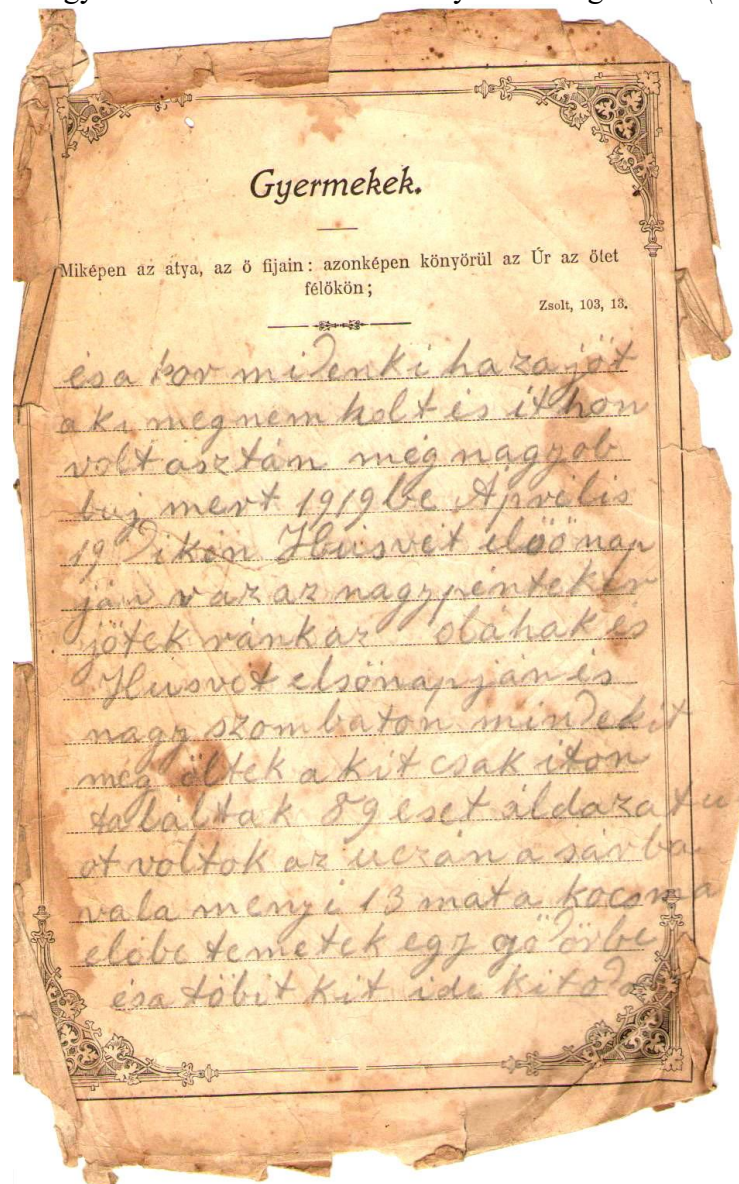 Gyermekek.
Miképen az atya, az ő fijain: azonképen könyörül az Úr az őtet
félőkön;
Zsolt, 103, 13.
és a kor midenki haza jöt
aki megnem holt és it hon
volt asztán még nagyob
baj mert 1919 be Április
19 dikén Husvét előő nap
ján vaz az nagypénteken
jötek ránk az oláhak és
Husvét elsőnapján és
nagy szombaton mindekit
meg öltek a kit csak iton
találtak 89 eset áldazatu
ot voltok az uczán a sárba
vala menyi 13 mat a kocsma
előbe temetek egy gödörbe
és a töbit kit ide kit oda